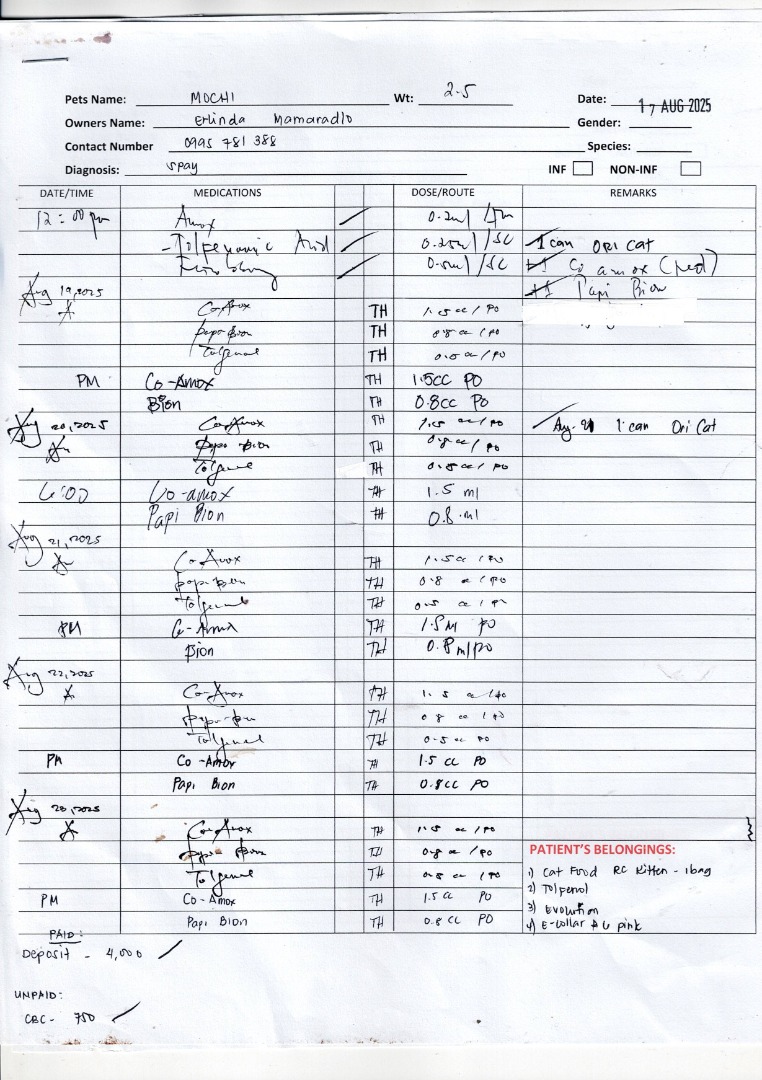 Pets Name: MOCHI Wt: 2.5 Date: 17 AUG 2025
Owners Name: Erlinda Mamaradlo Gender:
Contact Number 0995 781 388 Species:
Diagnosis: spay INF NON-INF
DATE/TIME MEDICATIONS DOSE/ROUTE REMARKS
12:00 pm Amox 0.2ml /Im
- Tolfenamic Acid 0.25ml /SC 1 can ORI CAT
/SC +1 Co amox (red)
Aug 19, 2025 +1 Papi Bion
Co-Amox TH 1.5 cc / PO
papi-bion TH 0.8 cc / PO
Tolfenol TH 0.5 cc / PO
PM Co-Amox TH 1.5cc PO
Bion TH 0.8cc PO
Aug 20, 2025 Co-Amox TH 1.5 cc / PO Aug 21 1 can Ori Cat
papi-bion TH 0.8 cc / PO
Tolfenol TH 0.5 cc / PO
6:00 Co-amox TH 1.5 ml
Papi Bion TH 0.8 ml
Aug 21, 2025
Co-Amox TH 1.5 cc / PO
papi-bion TH 0.8 cc / PO
Tolfenol TH 0.5 cc / PO
PM Co-Amox TH 1.5 Ml PO
Bion TH 0.8 ml/PO
Aug 22, 2025
Co-Amox TH 1.5 cc / PO
papi-bion TH 0.8 cc / PO
Tolfenol TH 0.5 cc PO
PM Co-Amox TH 1.5 cc PO
Papi Bion TH 0.8cc PO
Aug 23, 2025
Co-Amox TH 1.5 cc / PO
papi bion TH 0.8 cc / PO PATIENT'S BELONGINGS:
Tolfenol TH 0.5 cc / PO 1) Cat Food RC Kitten - 1bag
2) Tolfenol
PM Co-Amox TH 1.5 cc PO 3) Evolution
Papi Bion TH 0.8 cc PO 4) E-collar #6 pink
PAID:
Deposit - 4,000
UNPAID:
CBC - 750